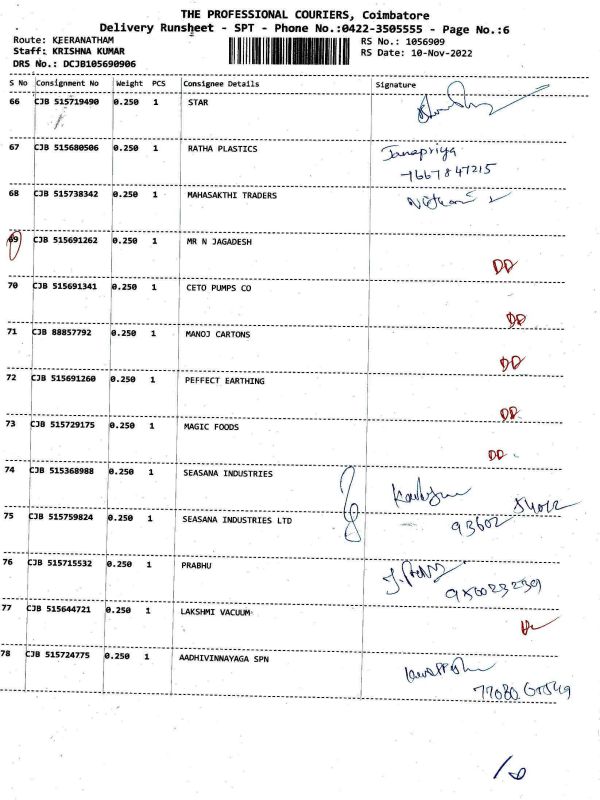 THE PROFESSIONAL COURIERS, Coimbatore
Delivery Runsheet - SPT - Phone No.:0422-3505555 - Page No.:6
Route: KEERANATHAM
RS No.: 1056909
Staff: KRISHNA KUMAR
RS Date: 10-Nov-2022
DRS No.: DCJB105690906
S No Consignment No Weight PCS Consignee Details Signature
66 CJB 515719490 0.250 1 STAR
67 CJB 515680506 0.250 1 RATHA PLASTICS Janapriya
7667847215
68 CJB 515738342 0.250 1 MAHASAKTHI TRADERS
69 CJB 515691262 0.250 1 MR N JAGADESH
DD
70 CJB 515691341 0.250 1 CETO PUMPS CO
DD
71 CJB 88857792 0.250 1 MANOJ CARTONS
DD
72 CJB 515691260 0.250 1 PEFFECT EARTHING
DD
73 CJB 515729175 0.250 1 MAGIC FOODS
DD
74 CJB 515368988 0.250 1 SEASANA INDUSTRIES
75 CJB 515759824 0.250 1 SEASANA INDUSTRIES LTD
93602
76 CJB 515715532 0.250 1 PRABHU
77 CJB 515644721 0.250 1 LAKSHMI VACUUM
78 CJB 515724775 0.250 1 AADHIVINNAYAGA SPN